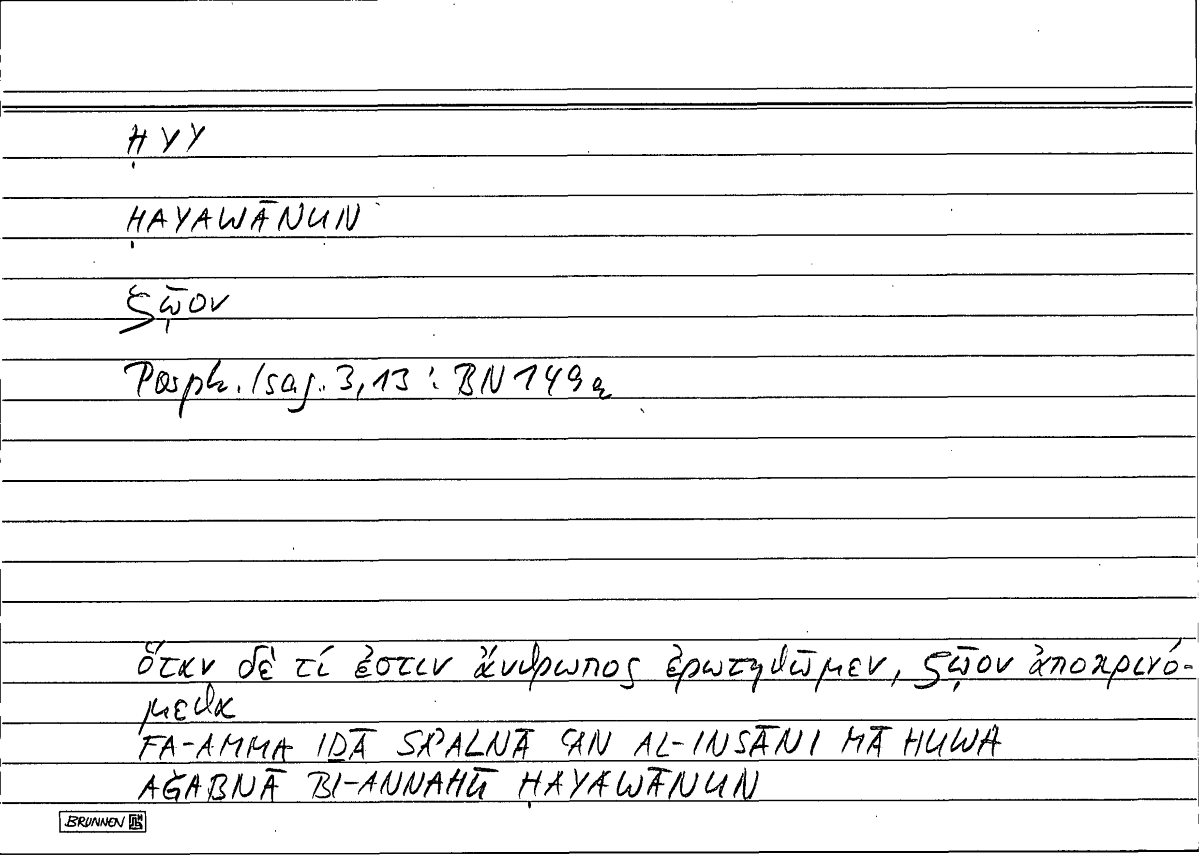 ḤYY
ḤAYAWĀNUN
ζῷον
Porph. Isag. 3,13 : BN 149a
ὅταν δὲ τί ἐστιν ἄνθρωπος ἐρωτηθῶμεν, ζῷον ἀποκρινό-
μεθα
FA-AMMA IḎĀ SAʾALNĀ ʿAN AL-INSĀNI MĀ HUWA
AǦABNĀ BI-ANNAHŪ ḤAYAWĀNUN
BRUNNEN